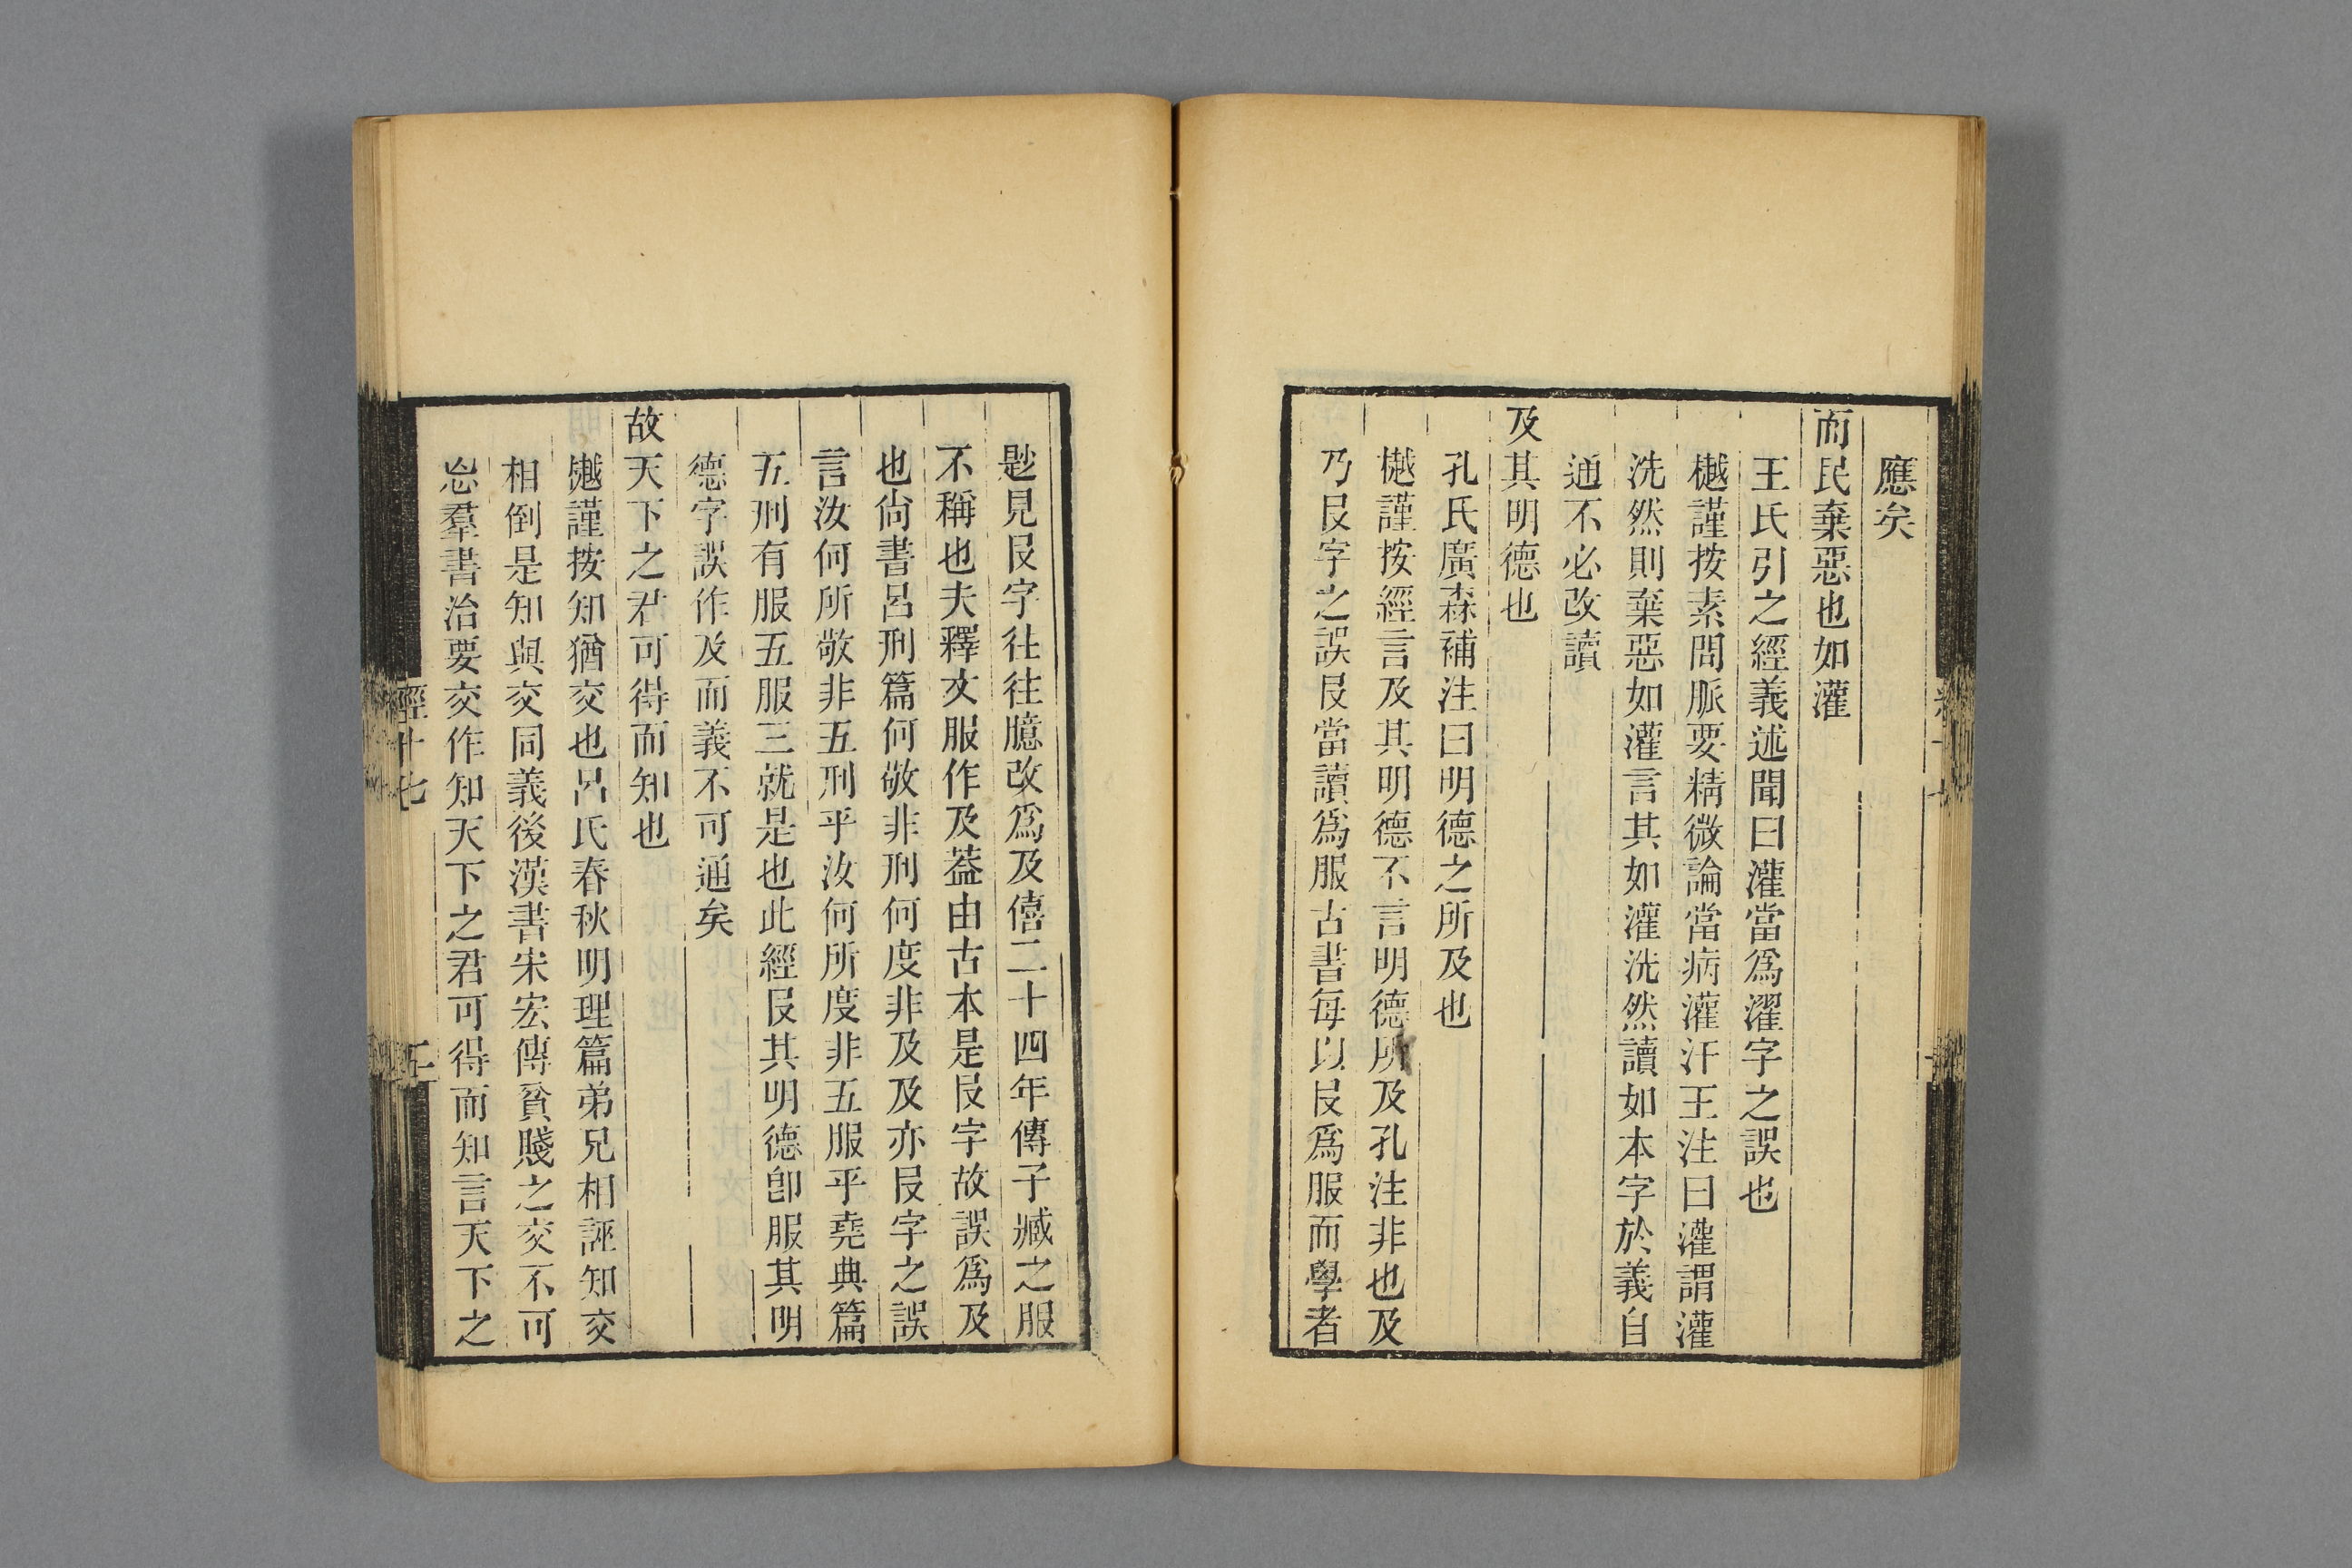 應矣
而民棄惡也如灌
王氏引之經義述聞曰灌當爲濯字之誤也
樾謹按素問脈要精微論當病灌汗王注曰灌謂灌
洗然則棄惡如灌言其如灌洗然讀如本字於義自
通不必改讀
及其明德也
孔氏廣森補注曰明德之所及也
樾謹按經言及其明德不言明德所及孔注非也及
乃𠬝字之誤𠬝當讀爲服古書每以𠬝爲服而學者
尟見𠬝字往往臆改爲及僖二十四年傳子臧之服
不稱也夫釋文服作及葢由古本是𠬝字故誤爲及
也尙書呂刑篇何敬非刑何度非及及亦𠬝字之誤
言汝何所敬非五刑乎汝何所度非五服乎堯典篇
五刑有服五服三就是也此經𠬝其明德卽服其明
德字誤作及而義不可通矣
故天下之君可得而知也
樾謹按知猶交也呂氏春秋明理篇弟兄相誣知交
相倒是知與交同義後漢書宋宏傳貧賤之交不可
忘羣書治要交作知天下之君可得而知言天下之
經十七